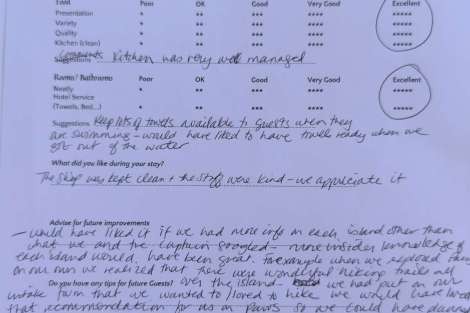 Taste Poor OK Good Very Good Excellent
Presentation * ** *** **** *****
Variety * ** *** **** *****
Quality * ** *** **** *****
Kitchen (clean) * ** *** **** *****
Suggestions Comments Kitchen was very well managed
Rooms/ Bathrooms Poor OK Good Very Good Excellent
Neatly * ** *** **** *****
Hotel Service
(Towels, Bed...) * ** *** **** *****
Suggestions Keep lots of towels available to guests when they
are swimming - would have liked to have towels ready when we
got out of the water
What did you like during your stay?
The ship was kept clean + the staff were kind - we appreciate it
Advise for future improvements
- would have liked it if we had more info on each island other than
what we and the captain googled - more insider knowledge of
each island would have been great. For example when we explored
on our own we realized that there were wonderful hiking trails all
Do you have any tips for future Guests? over the island - we had put on our
intake form that we wanted to/loved to hike we would have loved
that recommendation for us on Paros so we could have